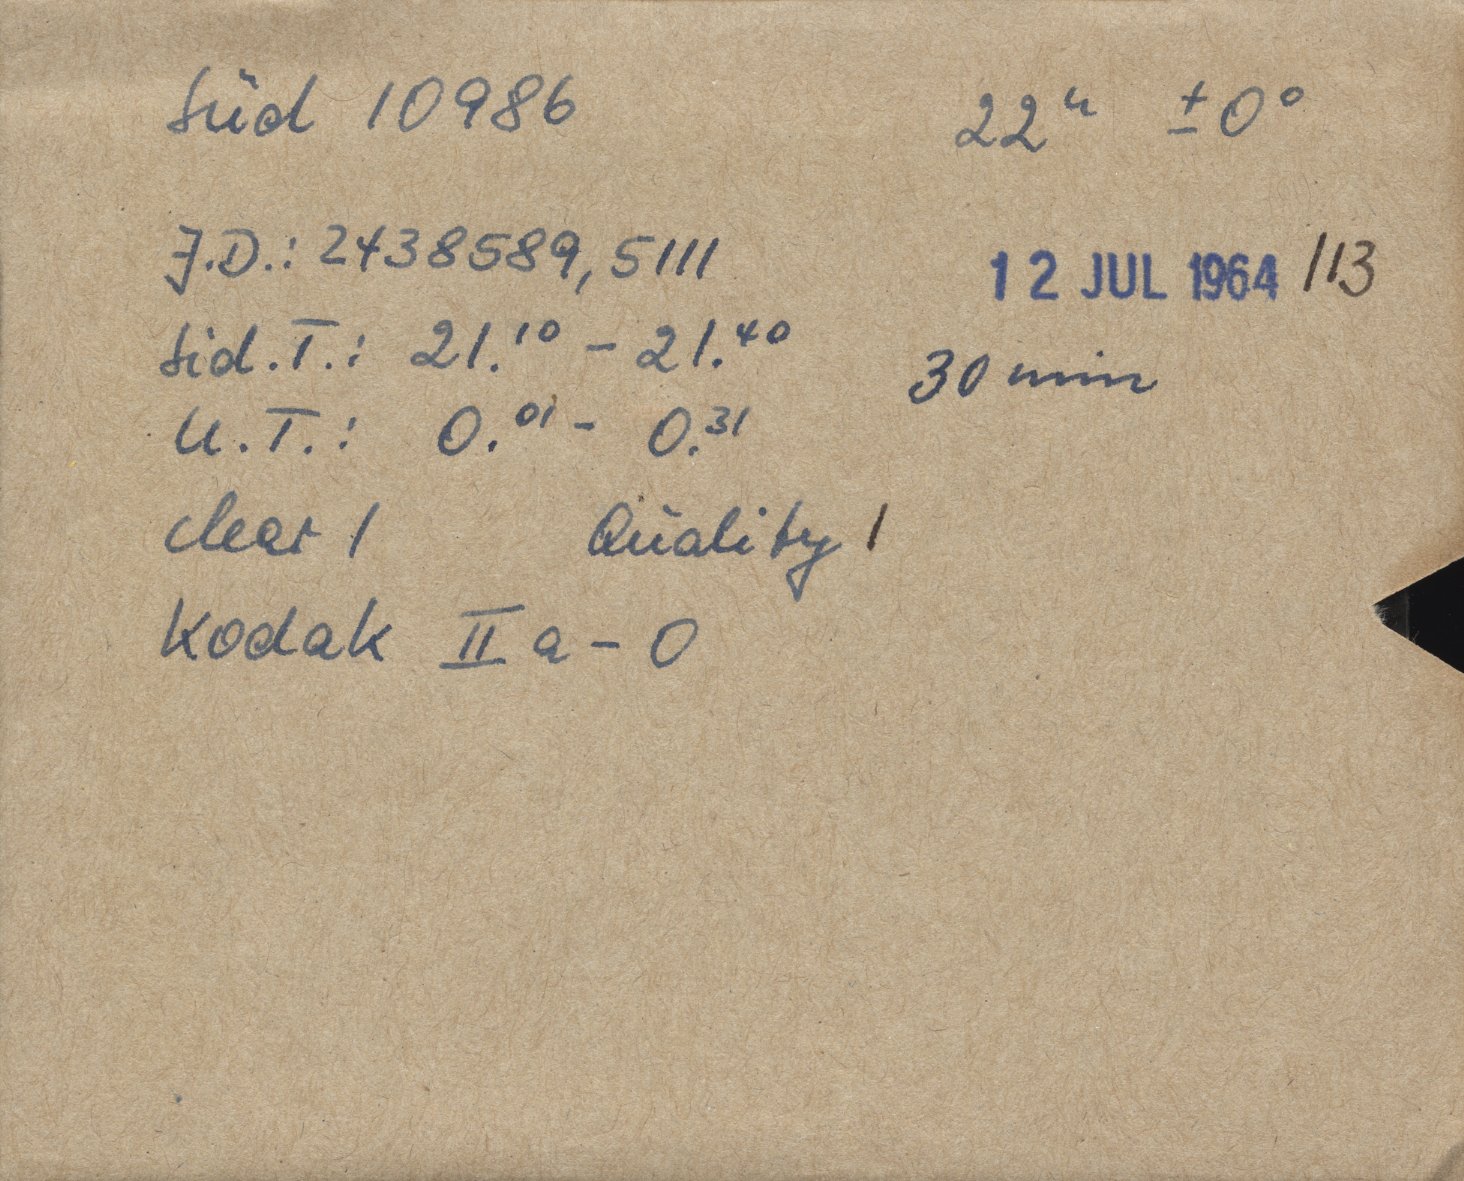 Süd 10986 22ʰ ±0°
J.D.: 2438589,5111 12 JUL 1964 /13
Sid.T.: 21.¹⁰ – 21.⁴⁰ 30 min
U.T.: 0.⁰¹ – 0.³¹
clear 1 Quality 1
Kodak II a – O